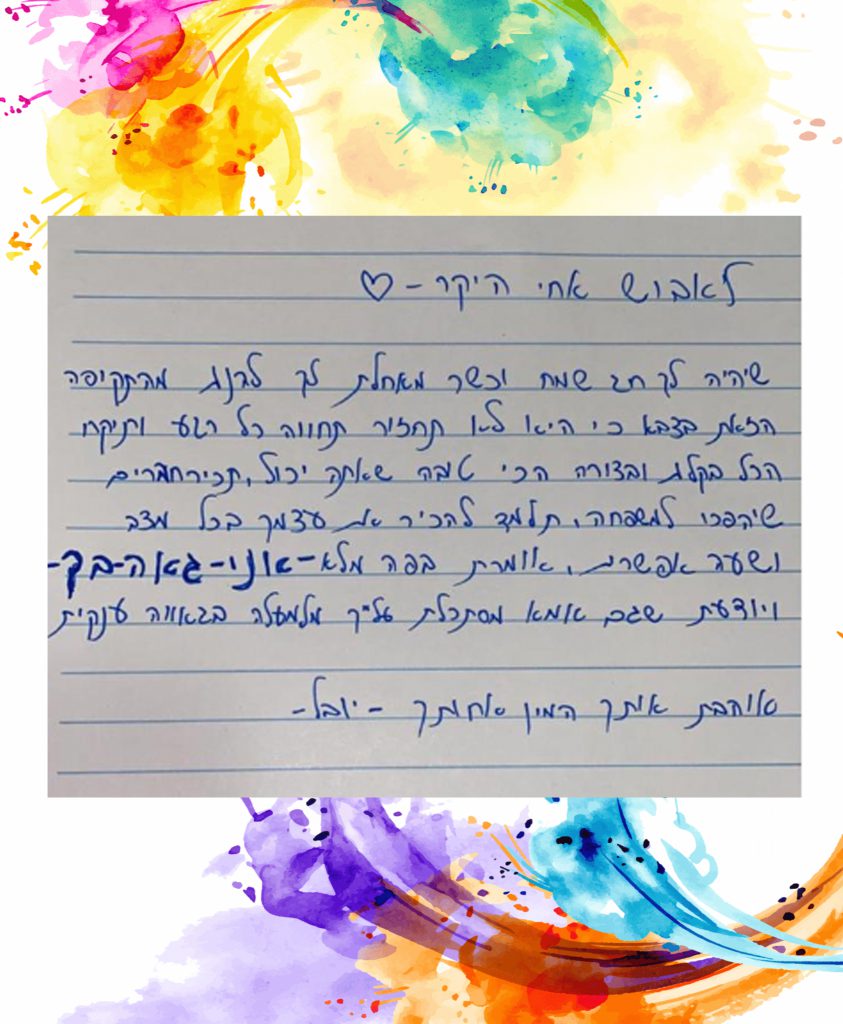 לאבוש אחי היקר - ♡
שיהיה לך חג שמח וכשר מאחלת לך להנות מהתקופה
הזאת בצבא כי היא לא תחזור תחווה כל רגע ותיקח
הכל בקלות ובצורה הכי טובה שאתה יכול, תכיר חברים
שיהפכו למשפחה, תלמד להכיר את עצמך בכל מצב
ושעה אפשרית, אומרת בפה מלא - אני - גאה - בך -
ויודעת שגם אמא מסתכלת עליך מלמעלה בגאווה ענקית
אוהבת אותך המון אחותך - יובל -